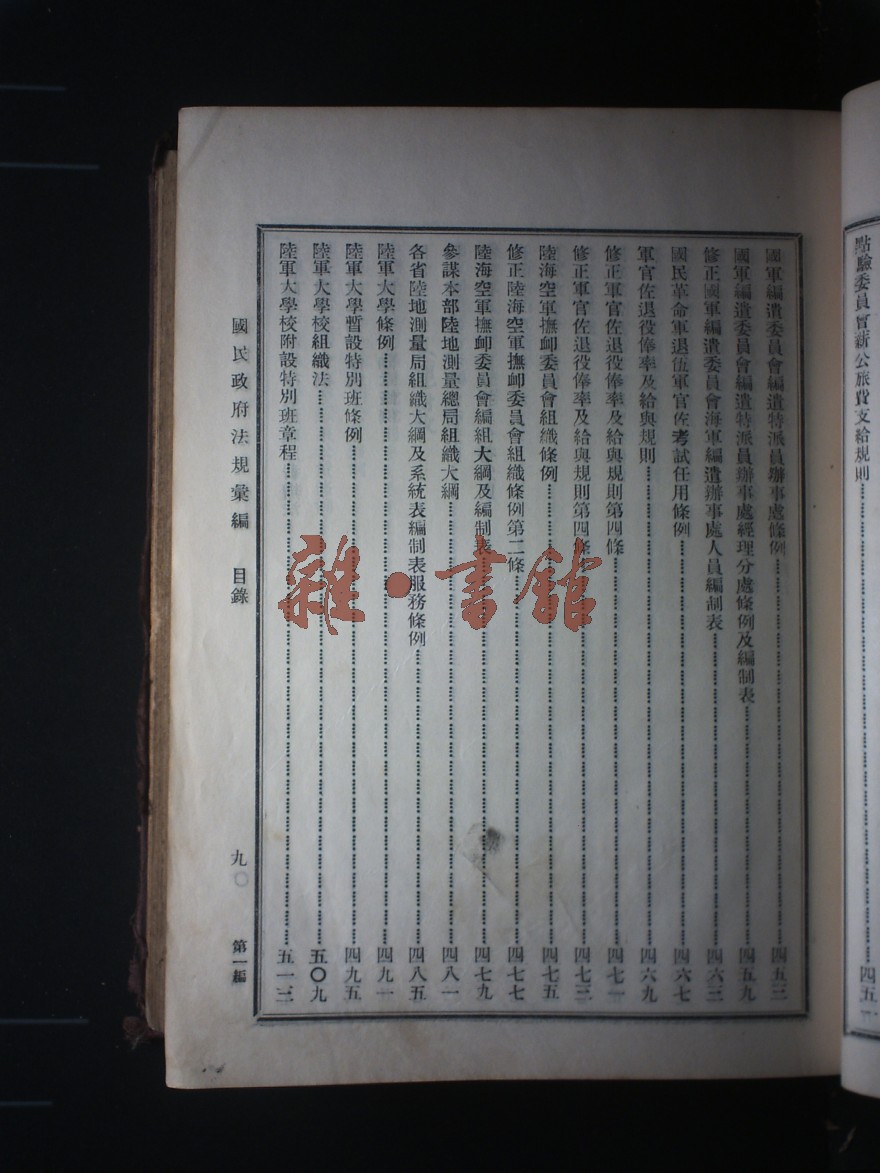 點驗委員會薪公旅費支給規則……四五一
國軍編遣委員會編遣特派員辦事處條例……四五三
國軍編遣委員會編遣特派員辦事處經理分處條例及編制表……四五九
修正國軍編遣委員會海軍編遣辦事處人員編制表……四六三
國民革命軍退伍軍官佐考試任用條例……四六七
軍官佐退役俸率及給與規則……四六九
修正軍官佐退役俸率及給與規則第四條……四七一
修正軍官佐退役俸率及給與規則第四條……四七三
陸海空軍撫卹委員會組織條例……四七五
修正陸海空軍撫卹委員會組織條例第二條……四七七
陸海空軍撫卹委員會編組大綱及編制表……四七九
參謀本部陸地測量總局組織大綱……四八一
各省陸地測量局組織大綱及系統表編制表服務條例……四八五
陸軍大學條例……四九一
陸軍大學暫設特別班條例……四九五
陸軍大學校組織法……五〇九
陸軍大學校附設特別班章程……五一三
國民政府法規彙編 目錄 九〇 第一編
雜·書館